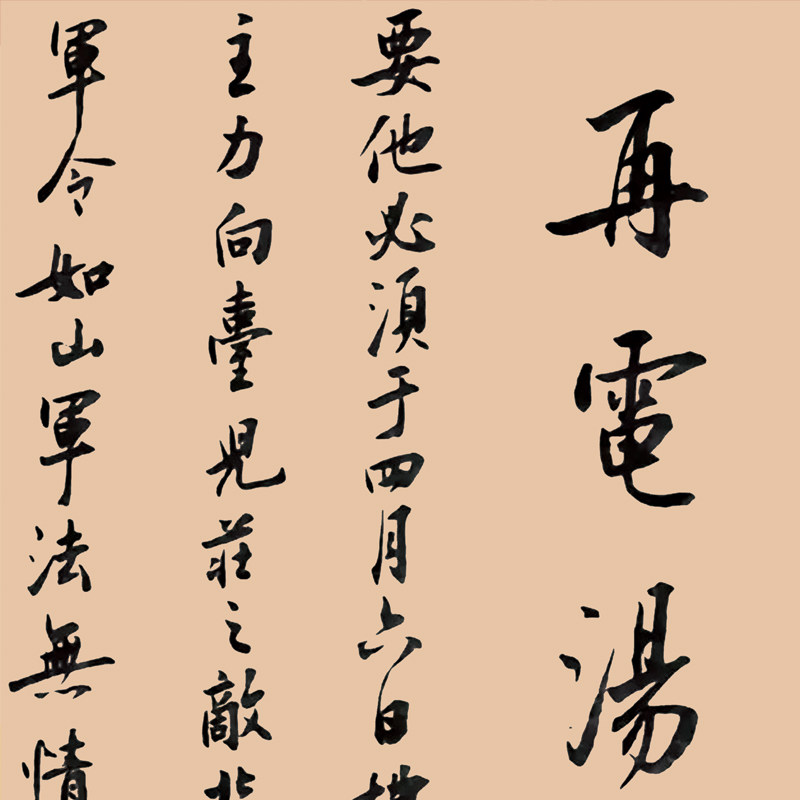 再電湯
要他必須于四月六日
主力向臺兒莊之敵
軍令如山軍法無情